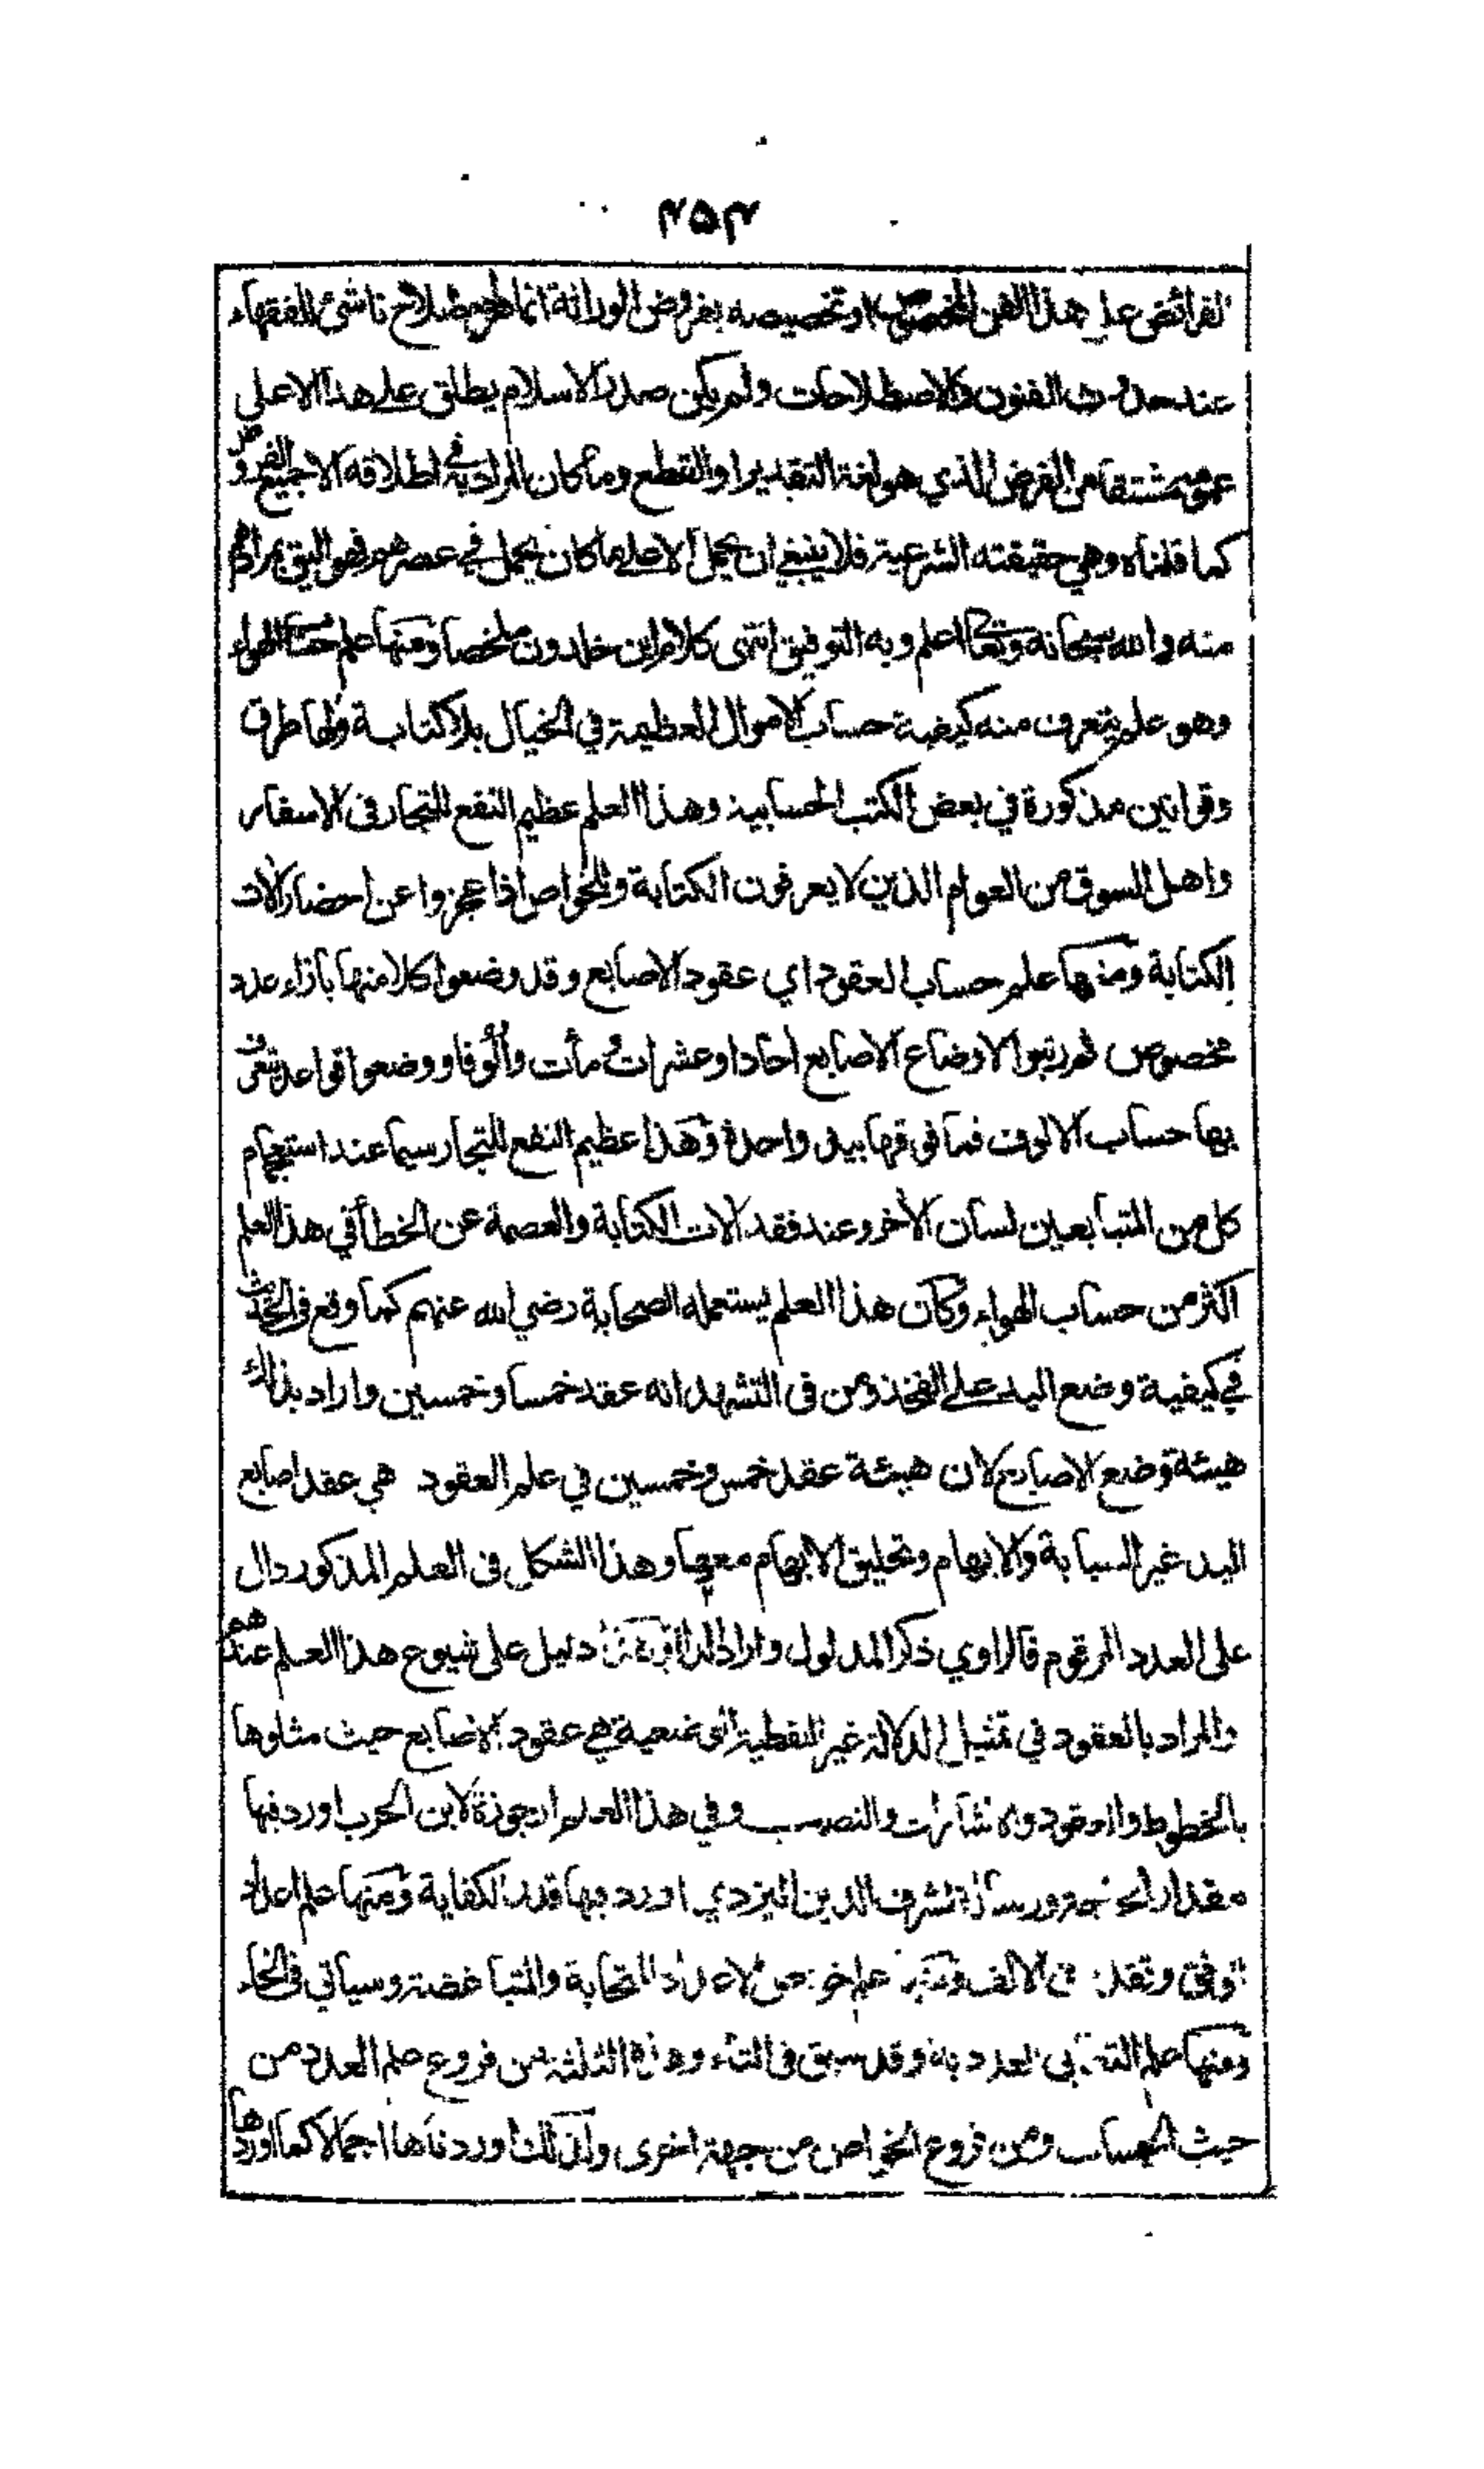 ٢٥٣
الفرائض على هذا الفن المخصوص او تخصيصه بفروض الوراثة انما هو اصطلاح ناشئ للفقهاء
عند حدوث الفنون والاصطلاحات ولم يكن صدر الاسلام يطلق على هذا الا على
عمومه مشتقا من الفرض الذي هو لغة التقدير او القطع وما كان المراد به في اطلاقه الا جميع الفروض
كما قلناه وهي حقيقته الشرعية فلا ينبغي ان يحمل الا على ما كان يحمل في عصرهم فهو اليق بمرادهم
منه والله سبحانه وتعالى اعلم وبه التوفيق انتهى كلام ابن خلدون ملخصا ومنها علم حساب الهواء
وهو علم يتعرف منه كيفية حساب الاموال العظيمة في الخيال بلا كتابة ولها طرق
وقوانين مذكورة في بعض الكتب الحسابية وهذا العلم عظيم النفع للتجار في الاسفار
واهل السوق من العوام الذين لا يعرفون الكتابة وللخواص اذا عجزوا عن احضار الات
الكتابة ومنها علم حساب العقود اي عقود الاصابع وقد وضعوا كلا منها بازاء عدد
مخصوص ثم رتبوا الاوضاع الاصابع احادا وعشرات ومأت وألوفا ووضعوا قواعد يتعرف
بها حساب الالوف فما فوقها بيد واحدة وهذا عظيم النفع للتجار سيما عند استعجام
كل من المتبايعين لسان الآخر وعند فقد الات الكتابة والعصمة عن الخطأ في هذا العلم
اكثر من حساب الهواء وكان هذا العلم يستعمله الصحابة رضي الله عنهم كما وقع في الحديث
في كيفية وضع اليد على الفخذ من في التشهد انه عقد خمسا وخمسين واراد بذلك
هيئة وضع الاصابع لان هيئة عقد خمس وخمسين في علم العقود هي عقد اصابع
اليد غير السبابة والابهام وتحليق الابهام معها وهذا الشكل في العلم المذكور دال
على العدد المرقوم فالراوي ذكر المدلول واراد الدال وهذا دليل على شيوع هذا العلم عندهم
والمراد بالعقود في تمثيل الدلالة غير اللفظية الوضعية هي عقود الاصابع حيث مثلوها
بالخطوط والعقود والاشارات والنصب وفي هذا العلم ارجوزة لابن الحرب اورد فيها
مقدار الحاجة ورسالة لشرف الدين اليزدي اورد فيها قدر الكفاية ومنها علم اعداد
الوفق وتقدم في الالف ومنها علم خواص الاعداد المتحابة والمتباغضة وسيأتي في الخاء
ومنها علم التعابي العددية وقد سبق في التاء وهذه الثلثة من فروع علم العدد من
حيث الحساب ومن فروع الخواص من جهة اخرى ولذلك اوردناها اجمالا كما اوردها